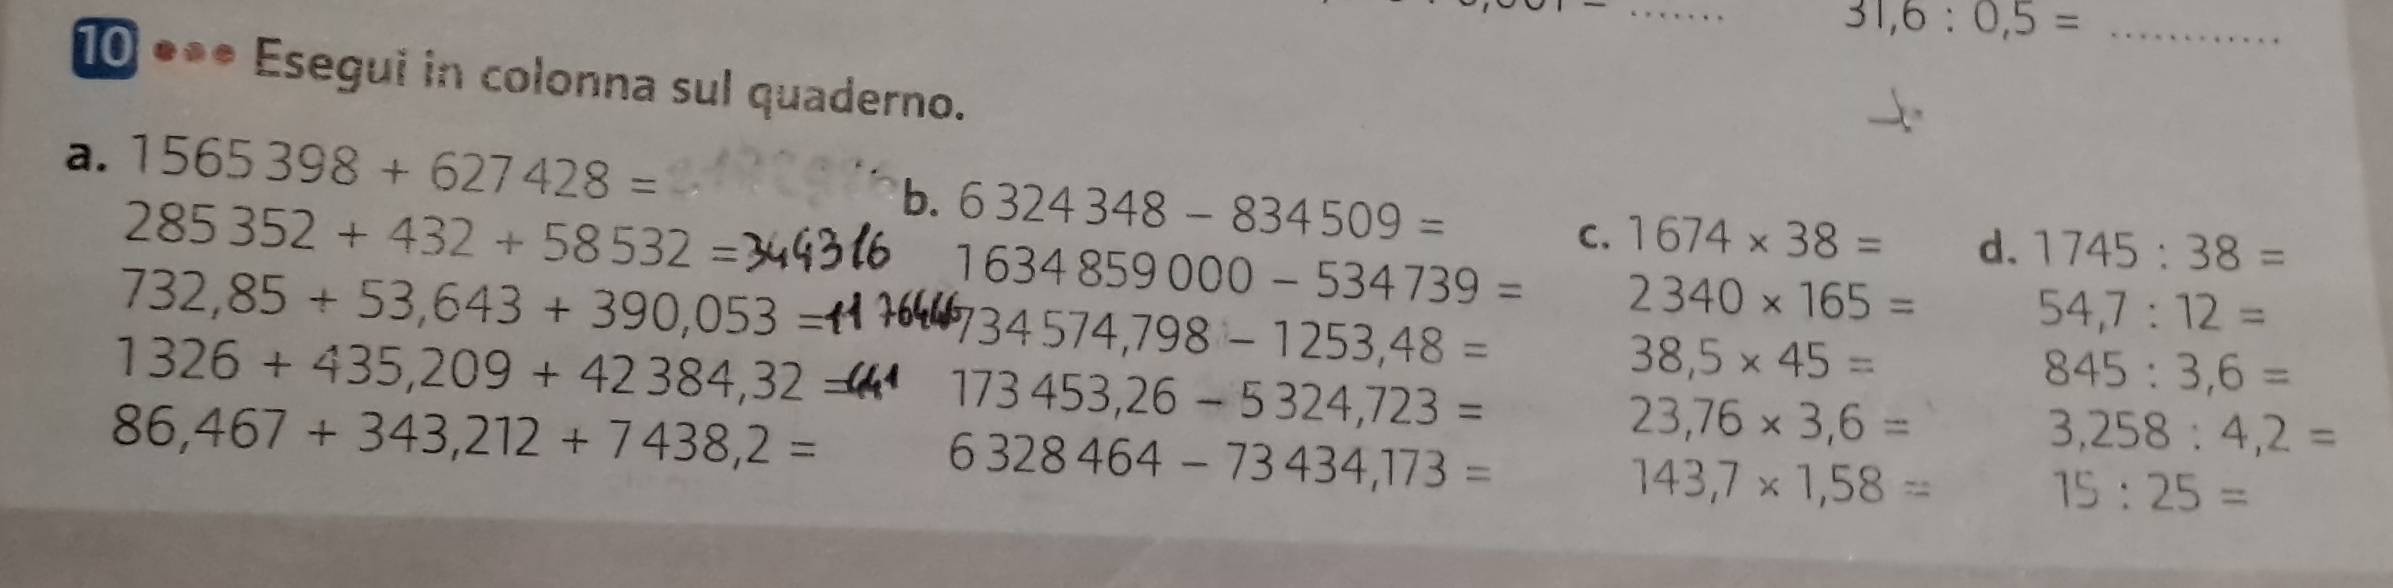 31,6 : 0,5 = ............
10 Esegui in colonna sul quaderno.
a. 1565 398 + 627 428 =
285 352 + 432 + 58 532 = 344316
732,85 + 53,643 + 390,053 = 1176446
1326 + 435,209 + 42 384,32 =
86,467 + 343,212 + 7 438,2 =
b. 6 324 348 – 834 509 =
1634 859 000 – 534 739 =
734 574,798 – 1253,48 =
173 453,26 – 5 324,723 =
6 328 464 – 73 434,173 =
c. 1674 × 38 =
2 340 × 165 =
38,5 × 45 =
23,76 × 3,6 =
143,7 × 1,58 =
d. 1745 : 38 =
54,7 : 12 =
845 : 3,6 =
3,258 : 4,2 =
15 : 25 =